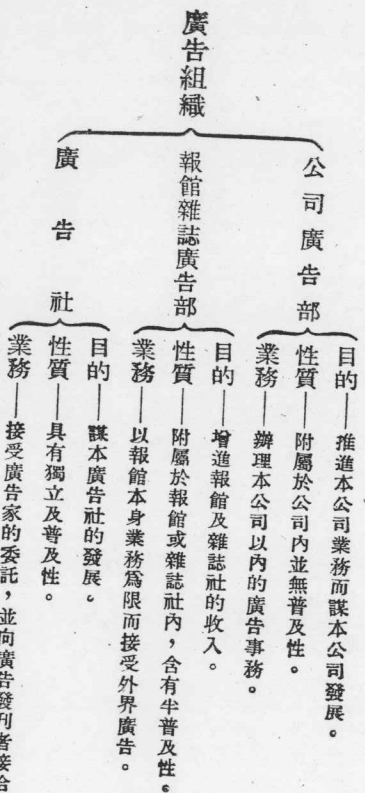 廣告組織
公司廣告部
目的——推進本公司業務而謀本公司發展。
性質——附屬於公司內並無普及性。
業務——辦理本公司以內的廣告事務。
報館雜誌廣告部
目的——增進報館及雜誌社的收入。
性質——附屬於報館或雜誌社內，含有半普及性。
業務——以報館本身業務爲限而接受外界廣告。
廣告社
目的——謀本廣告社的發展。
性質——具有獨立及普及性。
業務——接受廣告家的委託，並向廣告發刊者接合